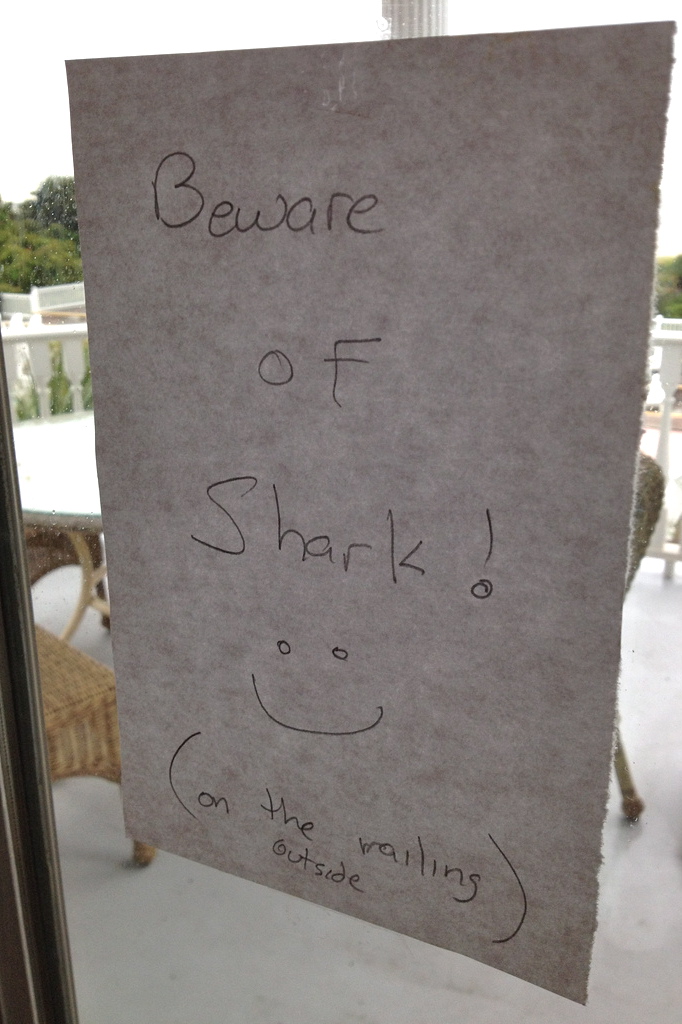 Beware
of
Shark!
(on the railing
outside)